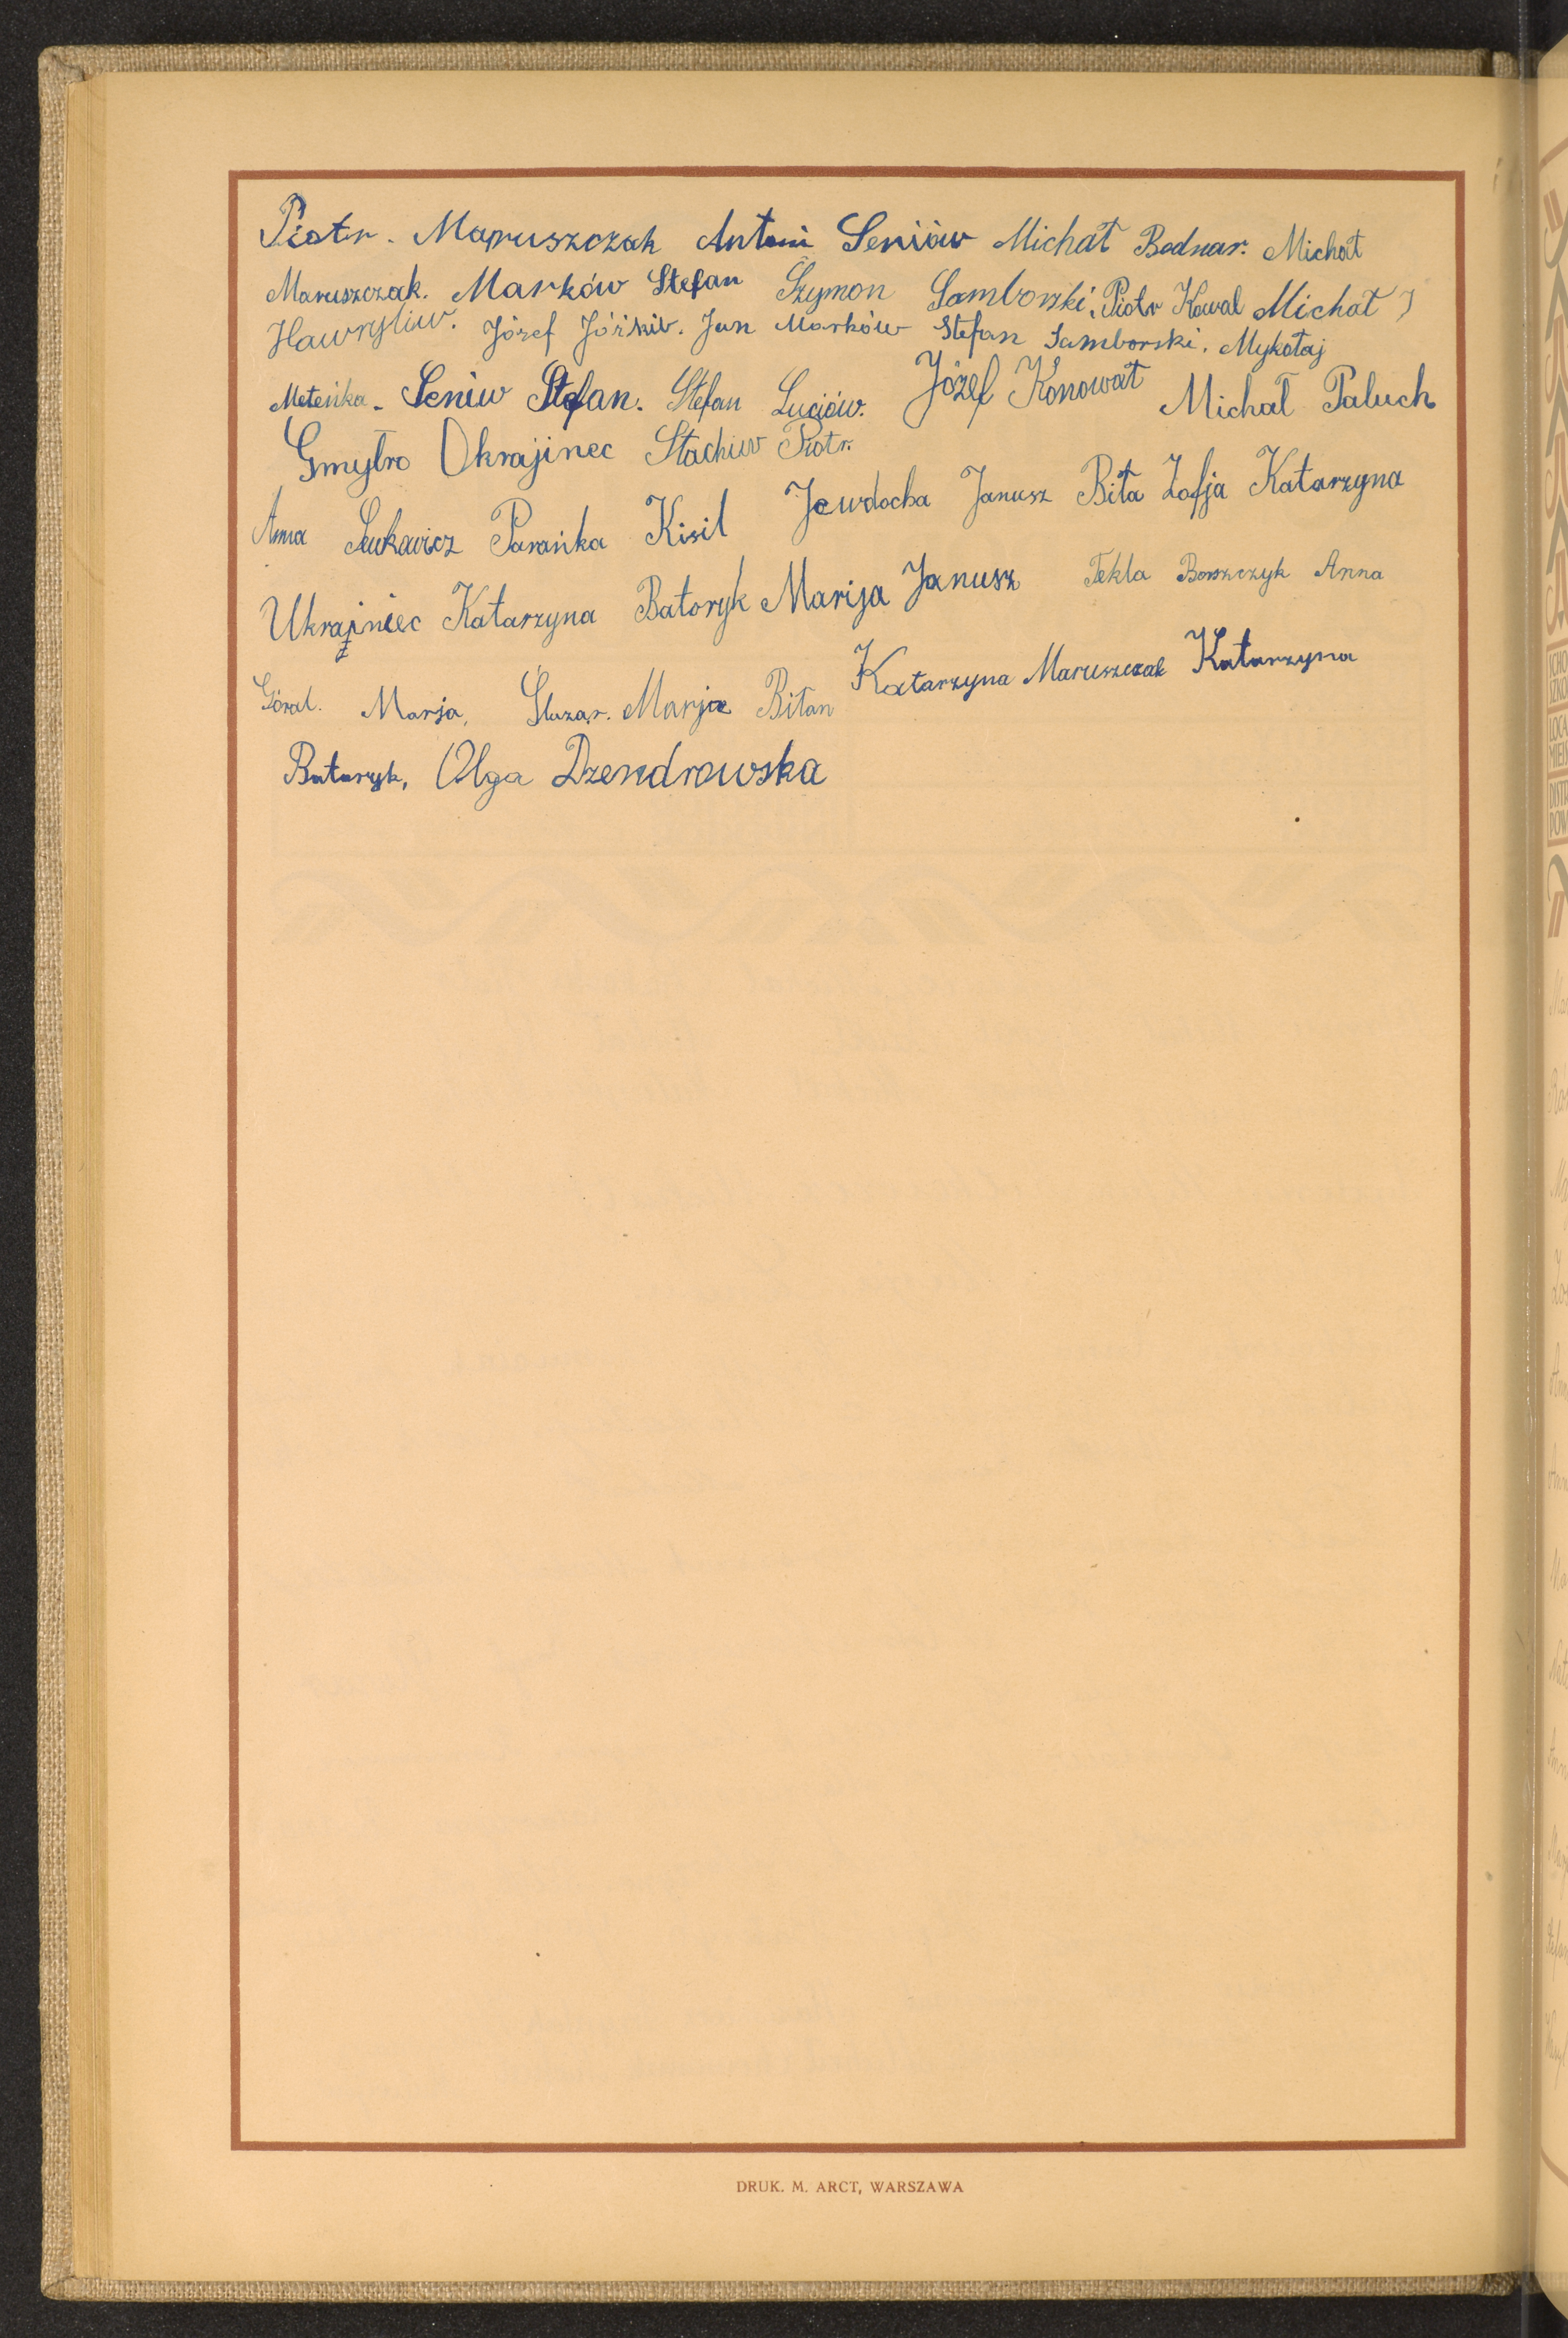 Piotr. Maruszczak Antoni Seniów Michał Bednar. Michał
Maruszczak. Marków Stefan Szymon Samborski, Piotr Kowal Michał
Hawryliw. Józef Jóśkiv. Jan Marków Stefan Samborski. Mykołaj
Meteńka. Seniw Stefan. Stefan Luciów. Józef Konował Michał Paluch
Gmytro Okrajinec Stachiw Piotr.
Anna Lewkowicz Parańka Kisil Jewdocha Janusz Biła Zofja Katarzyna
Ukrajniec Katarzyna Batoryk Marija Janusz Tekla Borszczyk Anna
Góral. Marja, Śluzar. Marja Biłan Katarzyna Maruszczak Katarzyna
Batoryk, Olga Dzendrowska
DRUK. M. ARCT, WARSZAWA